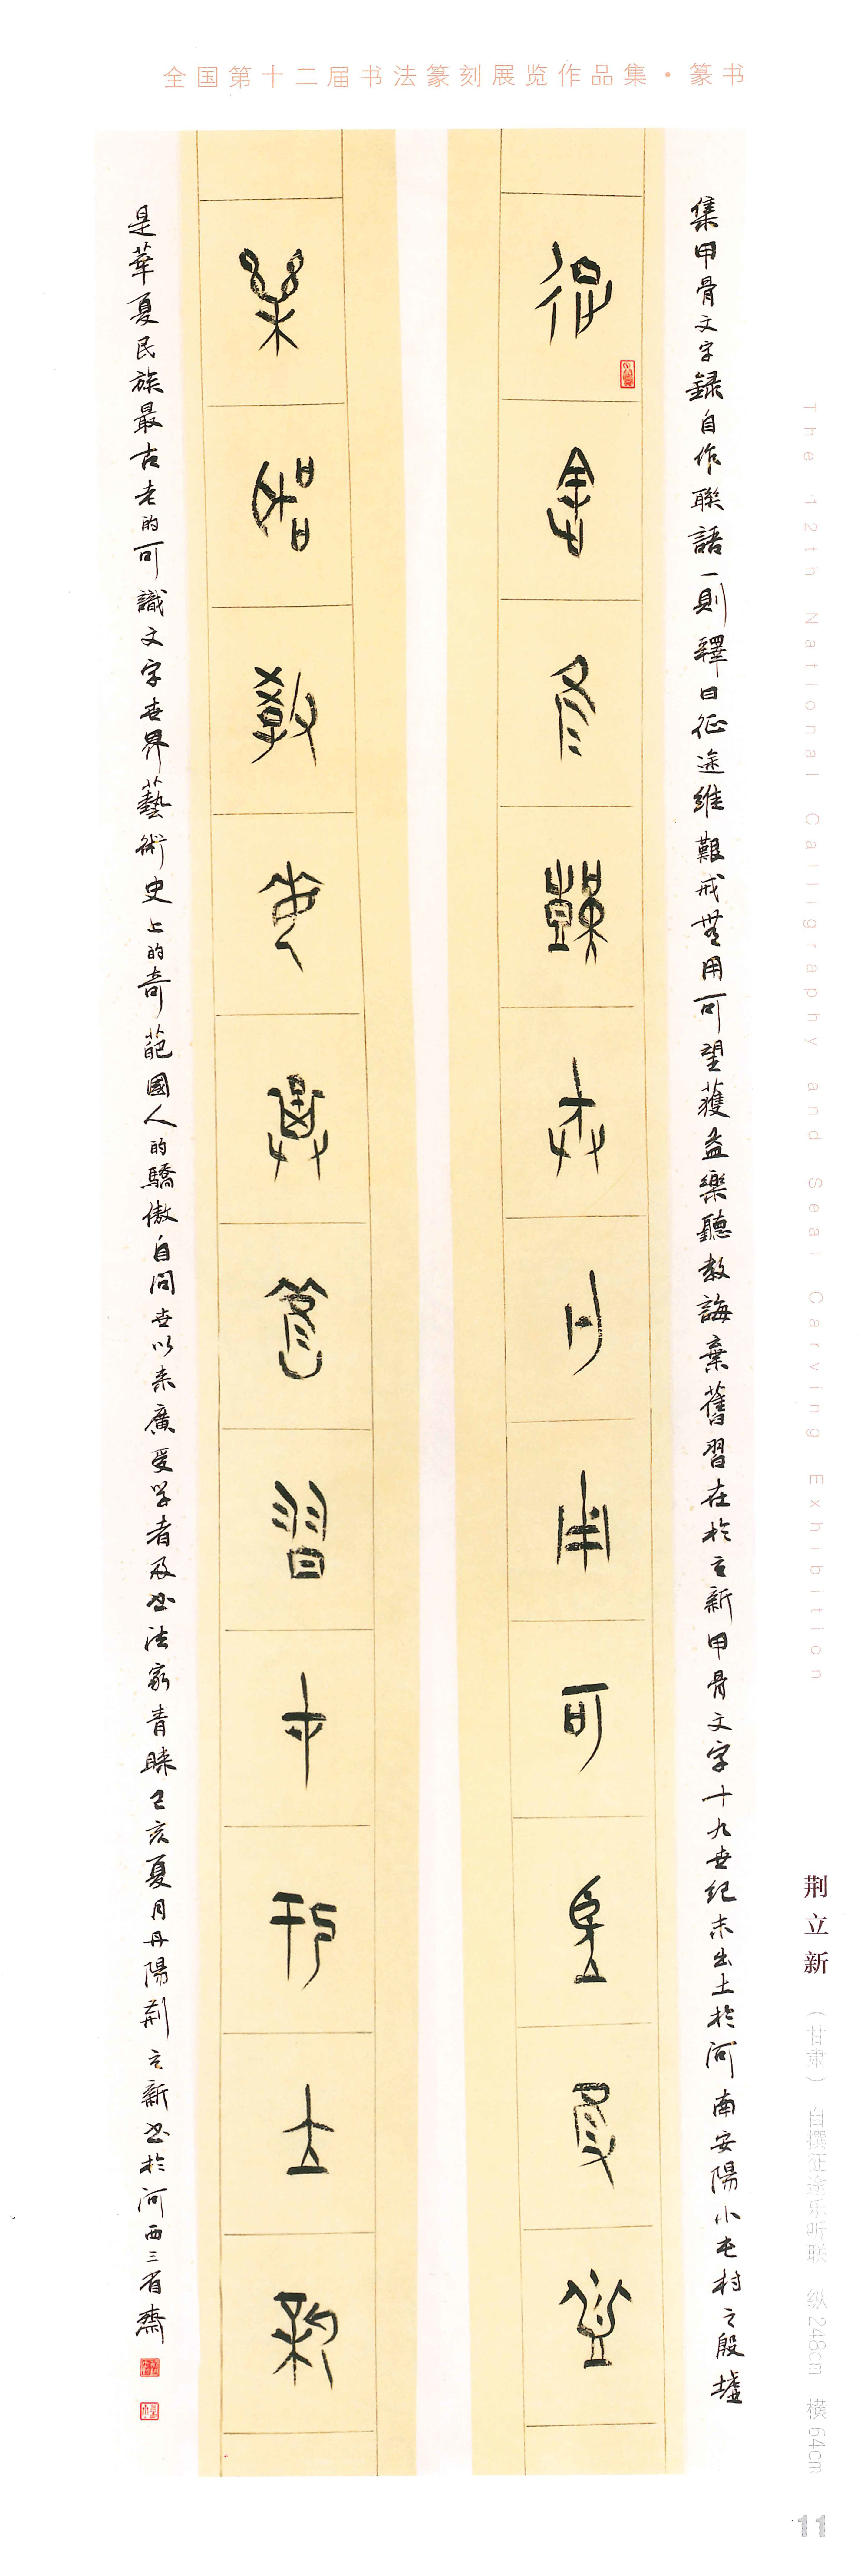 全国第十二届书法篆刻展览作品集·篆书
集甲骨文字録自作聯語一則釋曰征途維艱戒無用可望獲益樂聽教誨棄舊習在於立新甲骨文字十九世纪末出土於河南安陽小屯村之殷墟
征途維艱戒無用可望獲益
樂聽教誨棄舊習在於立新
是華夏民族最古老的可識文字世界藝術史上的奇葩國人的驕傲自问世以来廣受学者及书法家青睞己亥夏月丹陽荆立新书於河西三省齋
The 12th National Calligraphy and Seal Carving Exhibition
荆立新
（甘肃） 自撰征途乐听联 纵248cm 横64cm
11